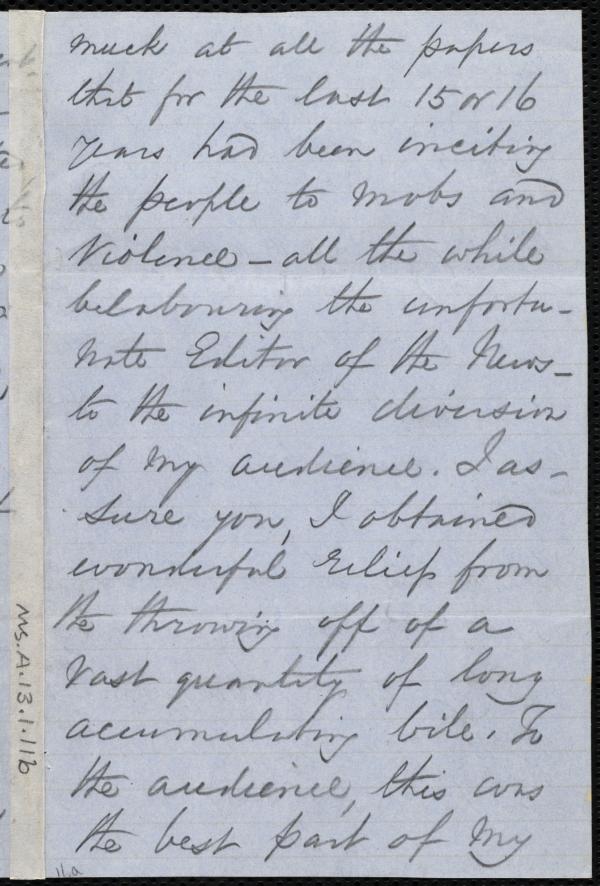 muck at all the papers
that for the last 15 or 16
years had been inciting
the people to mobs and
violence – all the while
belabouring the unfortu-
nate Editor of the News-
to the infinite diversion
of my audience. I as-
sure you, I obtained
wonderful relief from
the throwing off of a
vast quantity of long
accumulating bile. To
the audience, this was
the best part of my
Ms.A.13.1.11b
11a